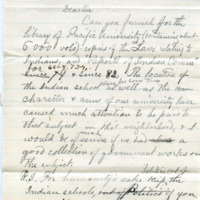 Dear Sir
Can you furnish for the
library of Pacific University (containing about
6000 vols) copies of the Laws relating to
Indians, and Reports of Indian Com's
for 
since 79 & since 82. The location of
the Indian school as well as the
character & aims of our university have
caused much attention to be paid to
that subject in this neighborhood, &
would be of service if we had
a good collection of government works on
the subject.
P.S. For humanity's sake keep the
Indian schools, out of Politics if you